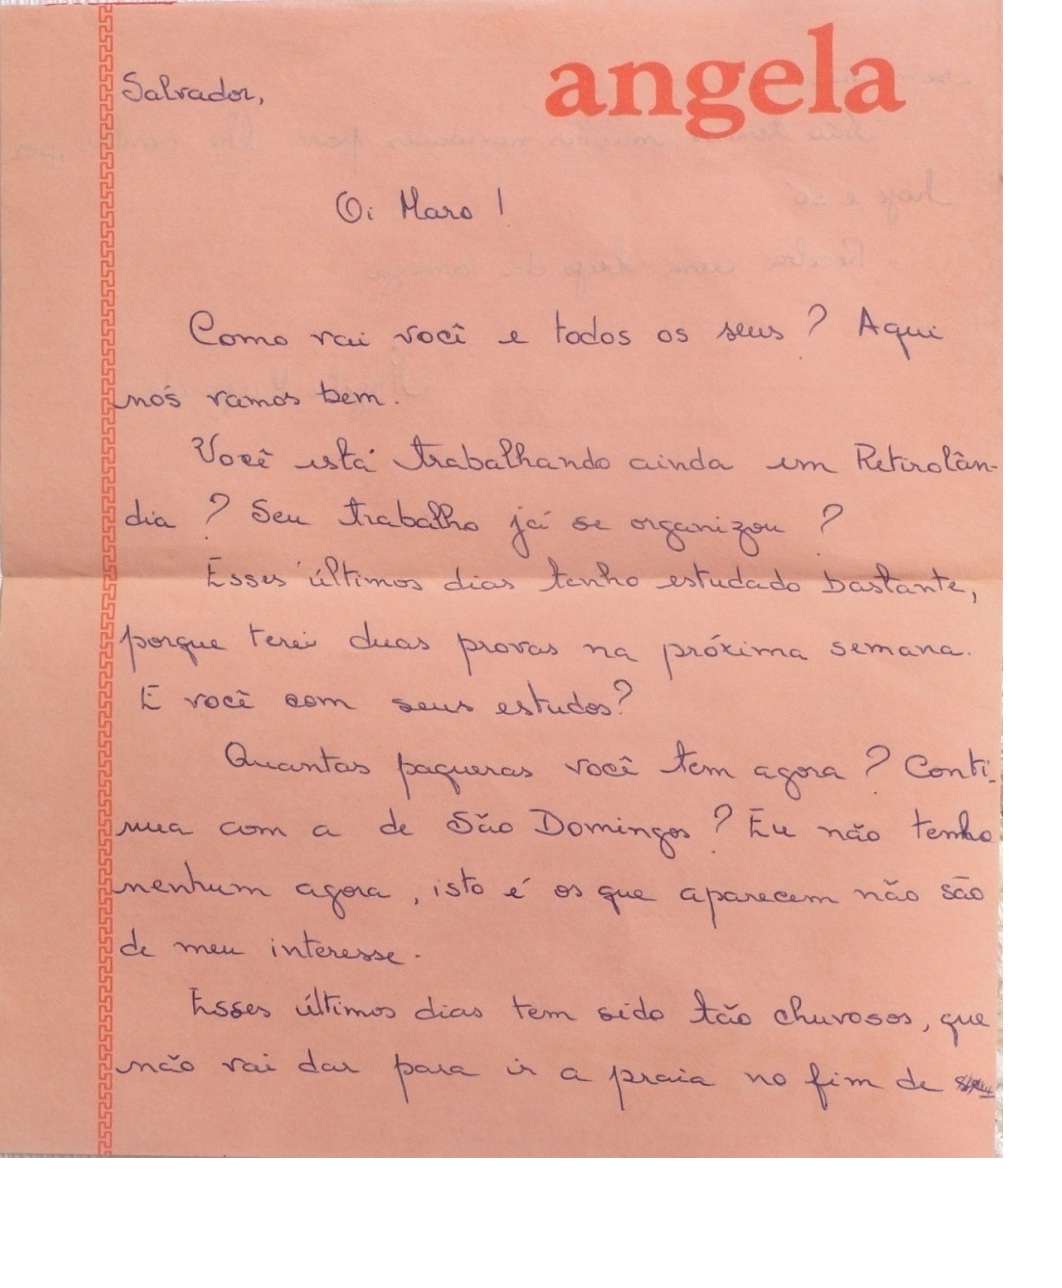 angela
Salvador,
Oi Maro !
Como vai você e todos os seus ? Aqui
nós vamos bem.
Você está trabalhando ainda em Retirolân-
dia ? Seu trabalho já se organizou ?
Esses últimos dias tenho estudado bastante,
porque terei duas provas na próxima semana.
E você com seus estudos?
Quantas paqueras você tem agora ? Conti-
nua com a de São Domingos ? Eu não tenho
nenhum agora , isto é os que aparecem não são
de meu interesse.
Esses últimos dias tem sido tão chuvosos, que
não vai dar para ir a praia no fim de